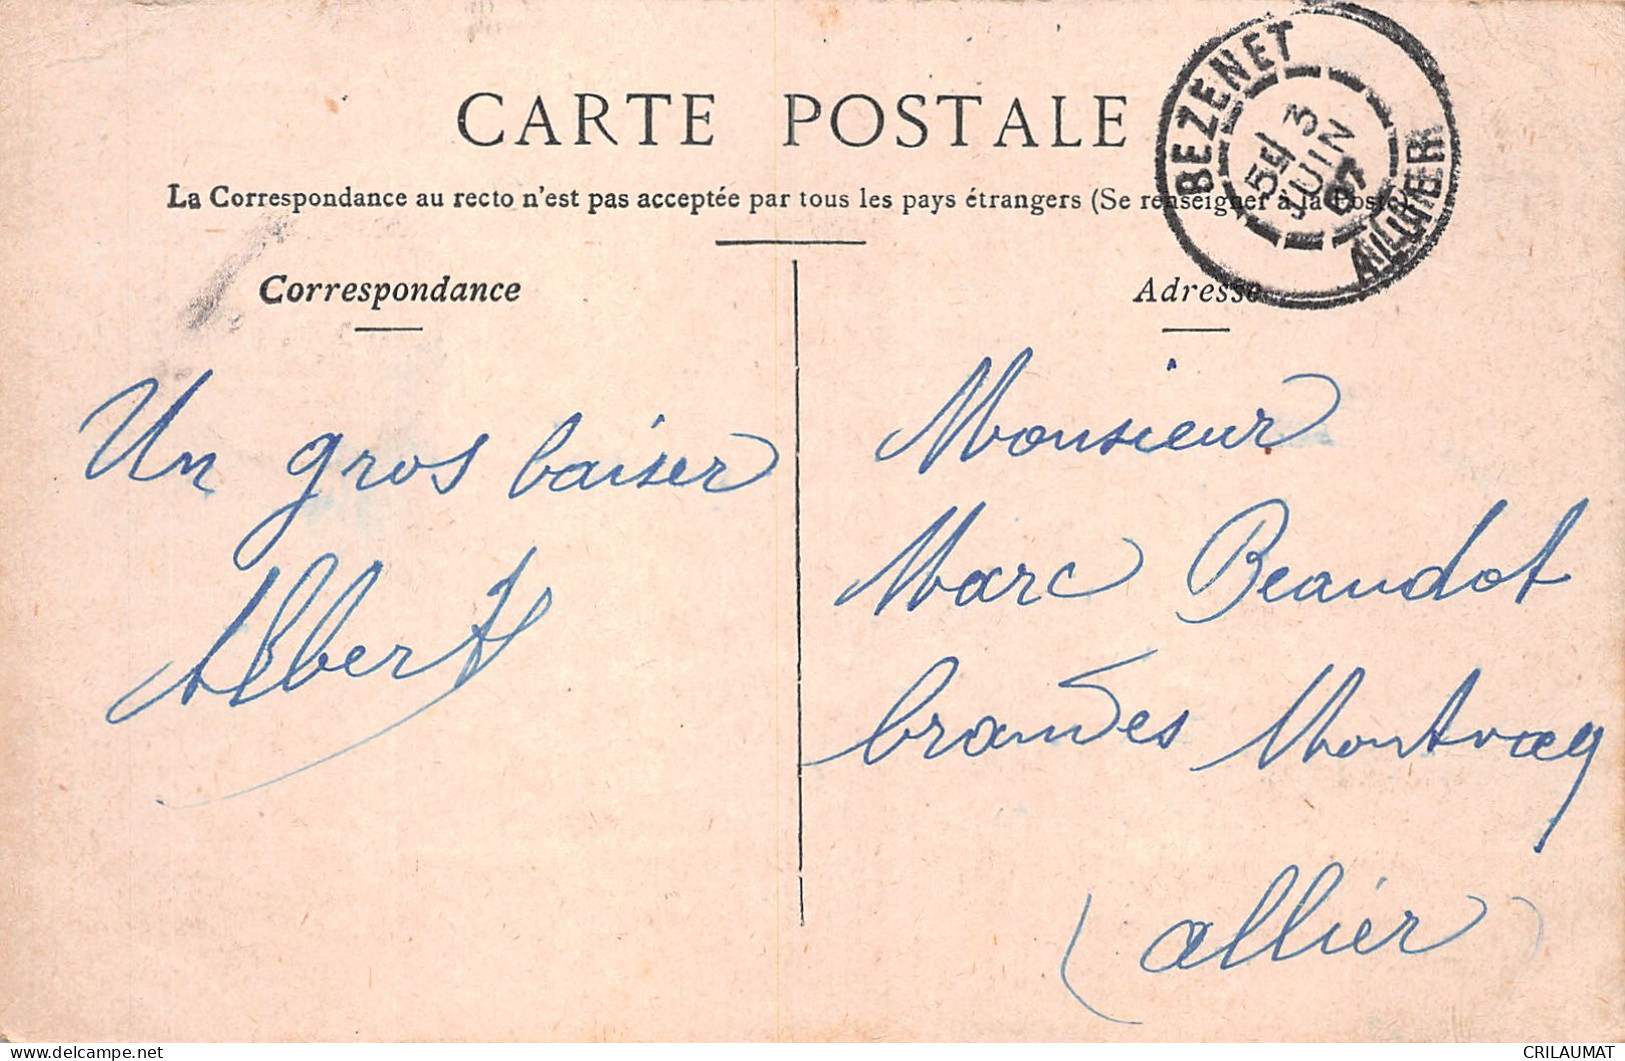 CARTE POSTALE
La Correspondance au recto n'est pas acceptée par tous les pays étrangers (Se renseigner à la Poste)
BEZENET
5E 3
JUIN
07
ALLIER
Correspondance
Un gros baiser
Albert
Adresse
Monsieur
Marc Beaudot
brandes Montvicq
(allier)
delcampe.net
CRILAUMAT